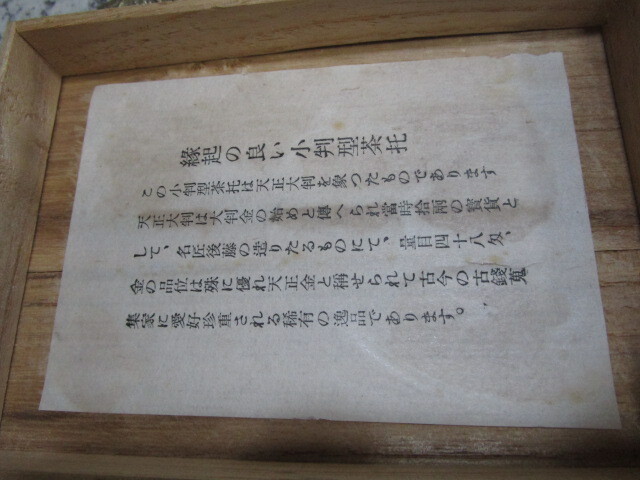 縁起の良い小判型茶托
この小判型茶托は天正大判を象つたものであります
天正大判は大判金の始めと傳へられ當時拾兩の寳貨と
して、名匠後藤の造りたるものにて、量目四十八匁、
金の品位は殊に優れ天正金と稱せられて古今の古錢蒐
集家に愛好珍重される稀有の逸品であります。